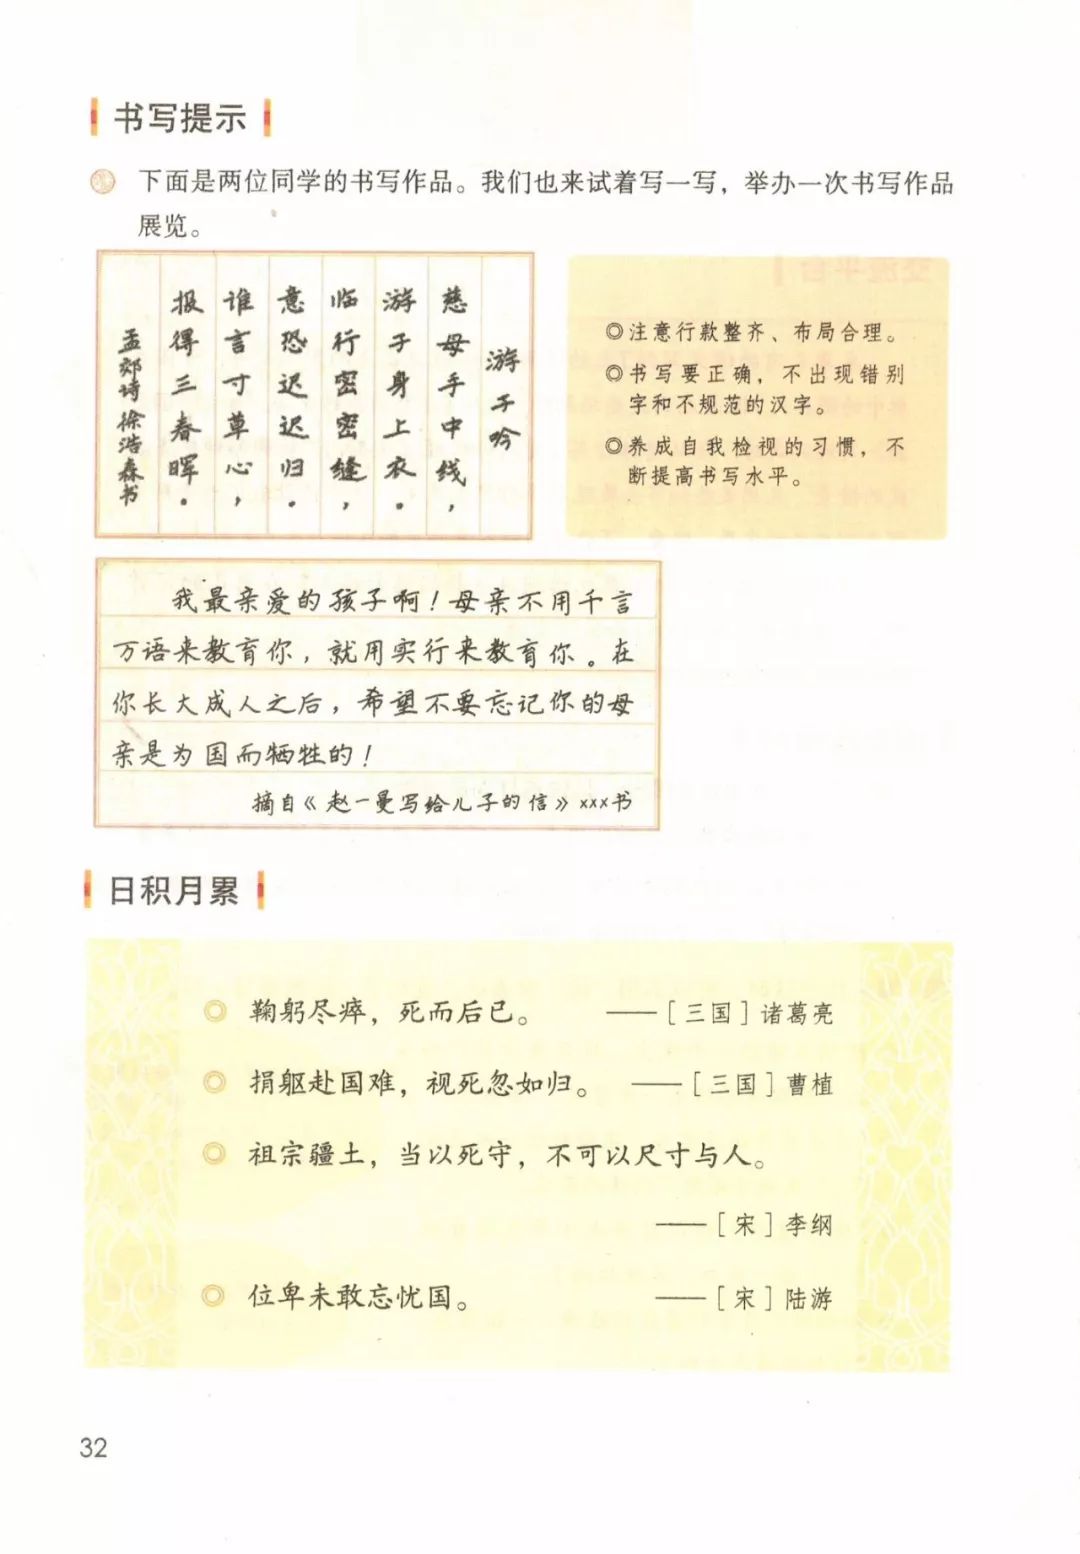 书写提示
下面是两位同学的书写作品。我们也来试着写一写，举办一次书写作品
展览。
游子吟
慈母手中线，
游子身上衣。
临行密密缝，
意恐迟迟归。
谁言寸草心，
报得三春晖。
孟郊诗徐浩森书
◎注意行款整齐、布局合理。
◎书写要正确，不出现错别
字和不规范的汉字。
◎养成自我检视的习惯，不
断提高书写水平。
我最亲爱的孩子啊！母亲不用千言
万语来教育你，就用实行来教育你。在
你长大成人之后，希望不要忘记你的母
亲是为国而牺牲的！
摘自《赵一曼写给儿子的信》xxx书
日积月累
◎ 鞠躬尽瘁，死而后已。 ——［三国］诸葛亮
◎ 捐躯赴国难，视死忽如归。 ——［三国］曹植
◎ 祖宗疆土，当以死守，不可以尺寸与人。
——［宋］李纲
◎ 位卑未敢忘忧国。 ——［宋］陆游
32